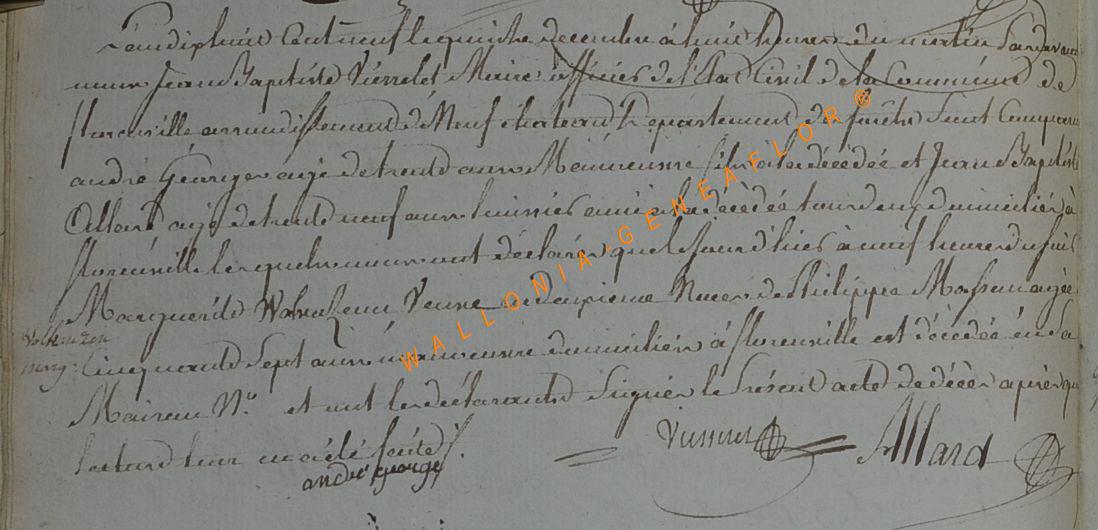 L'an dix huit Cent neuf le quinze decembre à huit heures du matin Pardevant
nous Jean Baptiste Vierset Maire officier de l'Etat Civil de la Commune de
florenville arrondissement de Neufchateau Departement des forêts Sont Comparu
andré Georges agé de trente ans Manœuvre fils à la décédée et Jean Baptiste
Allard agé de trente neuf ans huissier ami à la décédée tous deux domiciliés à
florenville lesquels nous ont déclarés que le Jour d'hier à neuf heure du soir
Marguerite Veuve en deuxieme Noces de Philippe Masson agée
Cinquante Sept ans manœuvre domiciliée à florenville est décédée en Sa
marg:
Maison N.o et ont les déclarants Signés le Présent acte de décès après que
lecture leur en a été faite
andré george
Allard
WALLONIA-GENEAFLOR ®